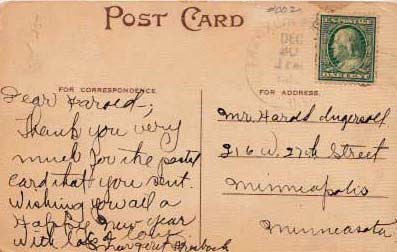 #002
POST CARD
DEC
U.S. POSTAGE
ONE CENT
FOR CORRESPONDENCE
Dear Harold;
Thank you very
much for the postal
card that you sent.
Wishing you all a
Happy New Year
with love
Margaret
FOR ADDRESS.
Mr. Harold Ingersoll
216 W. 27th Street
Minneapolis
Minneasota